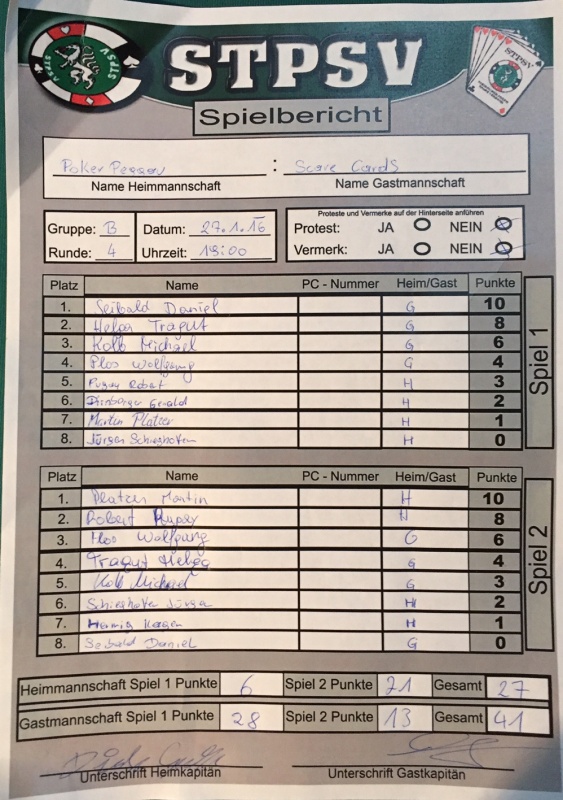 STPSV
STPSV
Spielbericht
Poker : Score Cards
Name Heimmannschaft Name Gastmannschaft
Proteste und Vermerke auf der Hinterseite anführen
Gruppe: B Datum: 29.1.16 Protest: JA NEIN
Runde: 4 Uhrzeit: 19:00 Vermerk: JA NEIN
Platz Name PC - Nummer Heim/Gast Punkte
1. Seibald Daniel G 10
2. Helga Tragut G 8
3. Kolb Michael G 6
4. Plos Wolfgang G 4
5. Robert H 3
6. H 2
7. Martin Platzer H 1
8. Jürgen Schieghofer H 0
Spiel 1
Platz Name PC - Nummer Heim/Gast Punkte
1. Platzer Martin H 10
2. Robert H 8
3. Plos Wolfgang G 6
4. Tragut Helga G 4
5. Kolb Michael G 3
6. Schieghofer Jürgen H 2
7. H 1
8. Seibald Daniel G 0
Spiel 2
Heimmannschaft Spiel 1 Punkte 6 Spiel 2 Punkte 21 Gesamt 27
Gastmannschaft Spiel 1 Punkte 28 Spiel 2 Punkte 13 Gesamt 41
Unterschrift Heimkapitän Unterschrift Gastkapitän